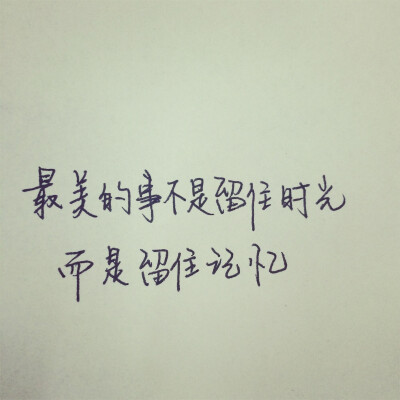 最美的事不是留住时光
而是留住记忆